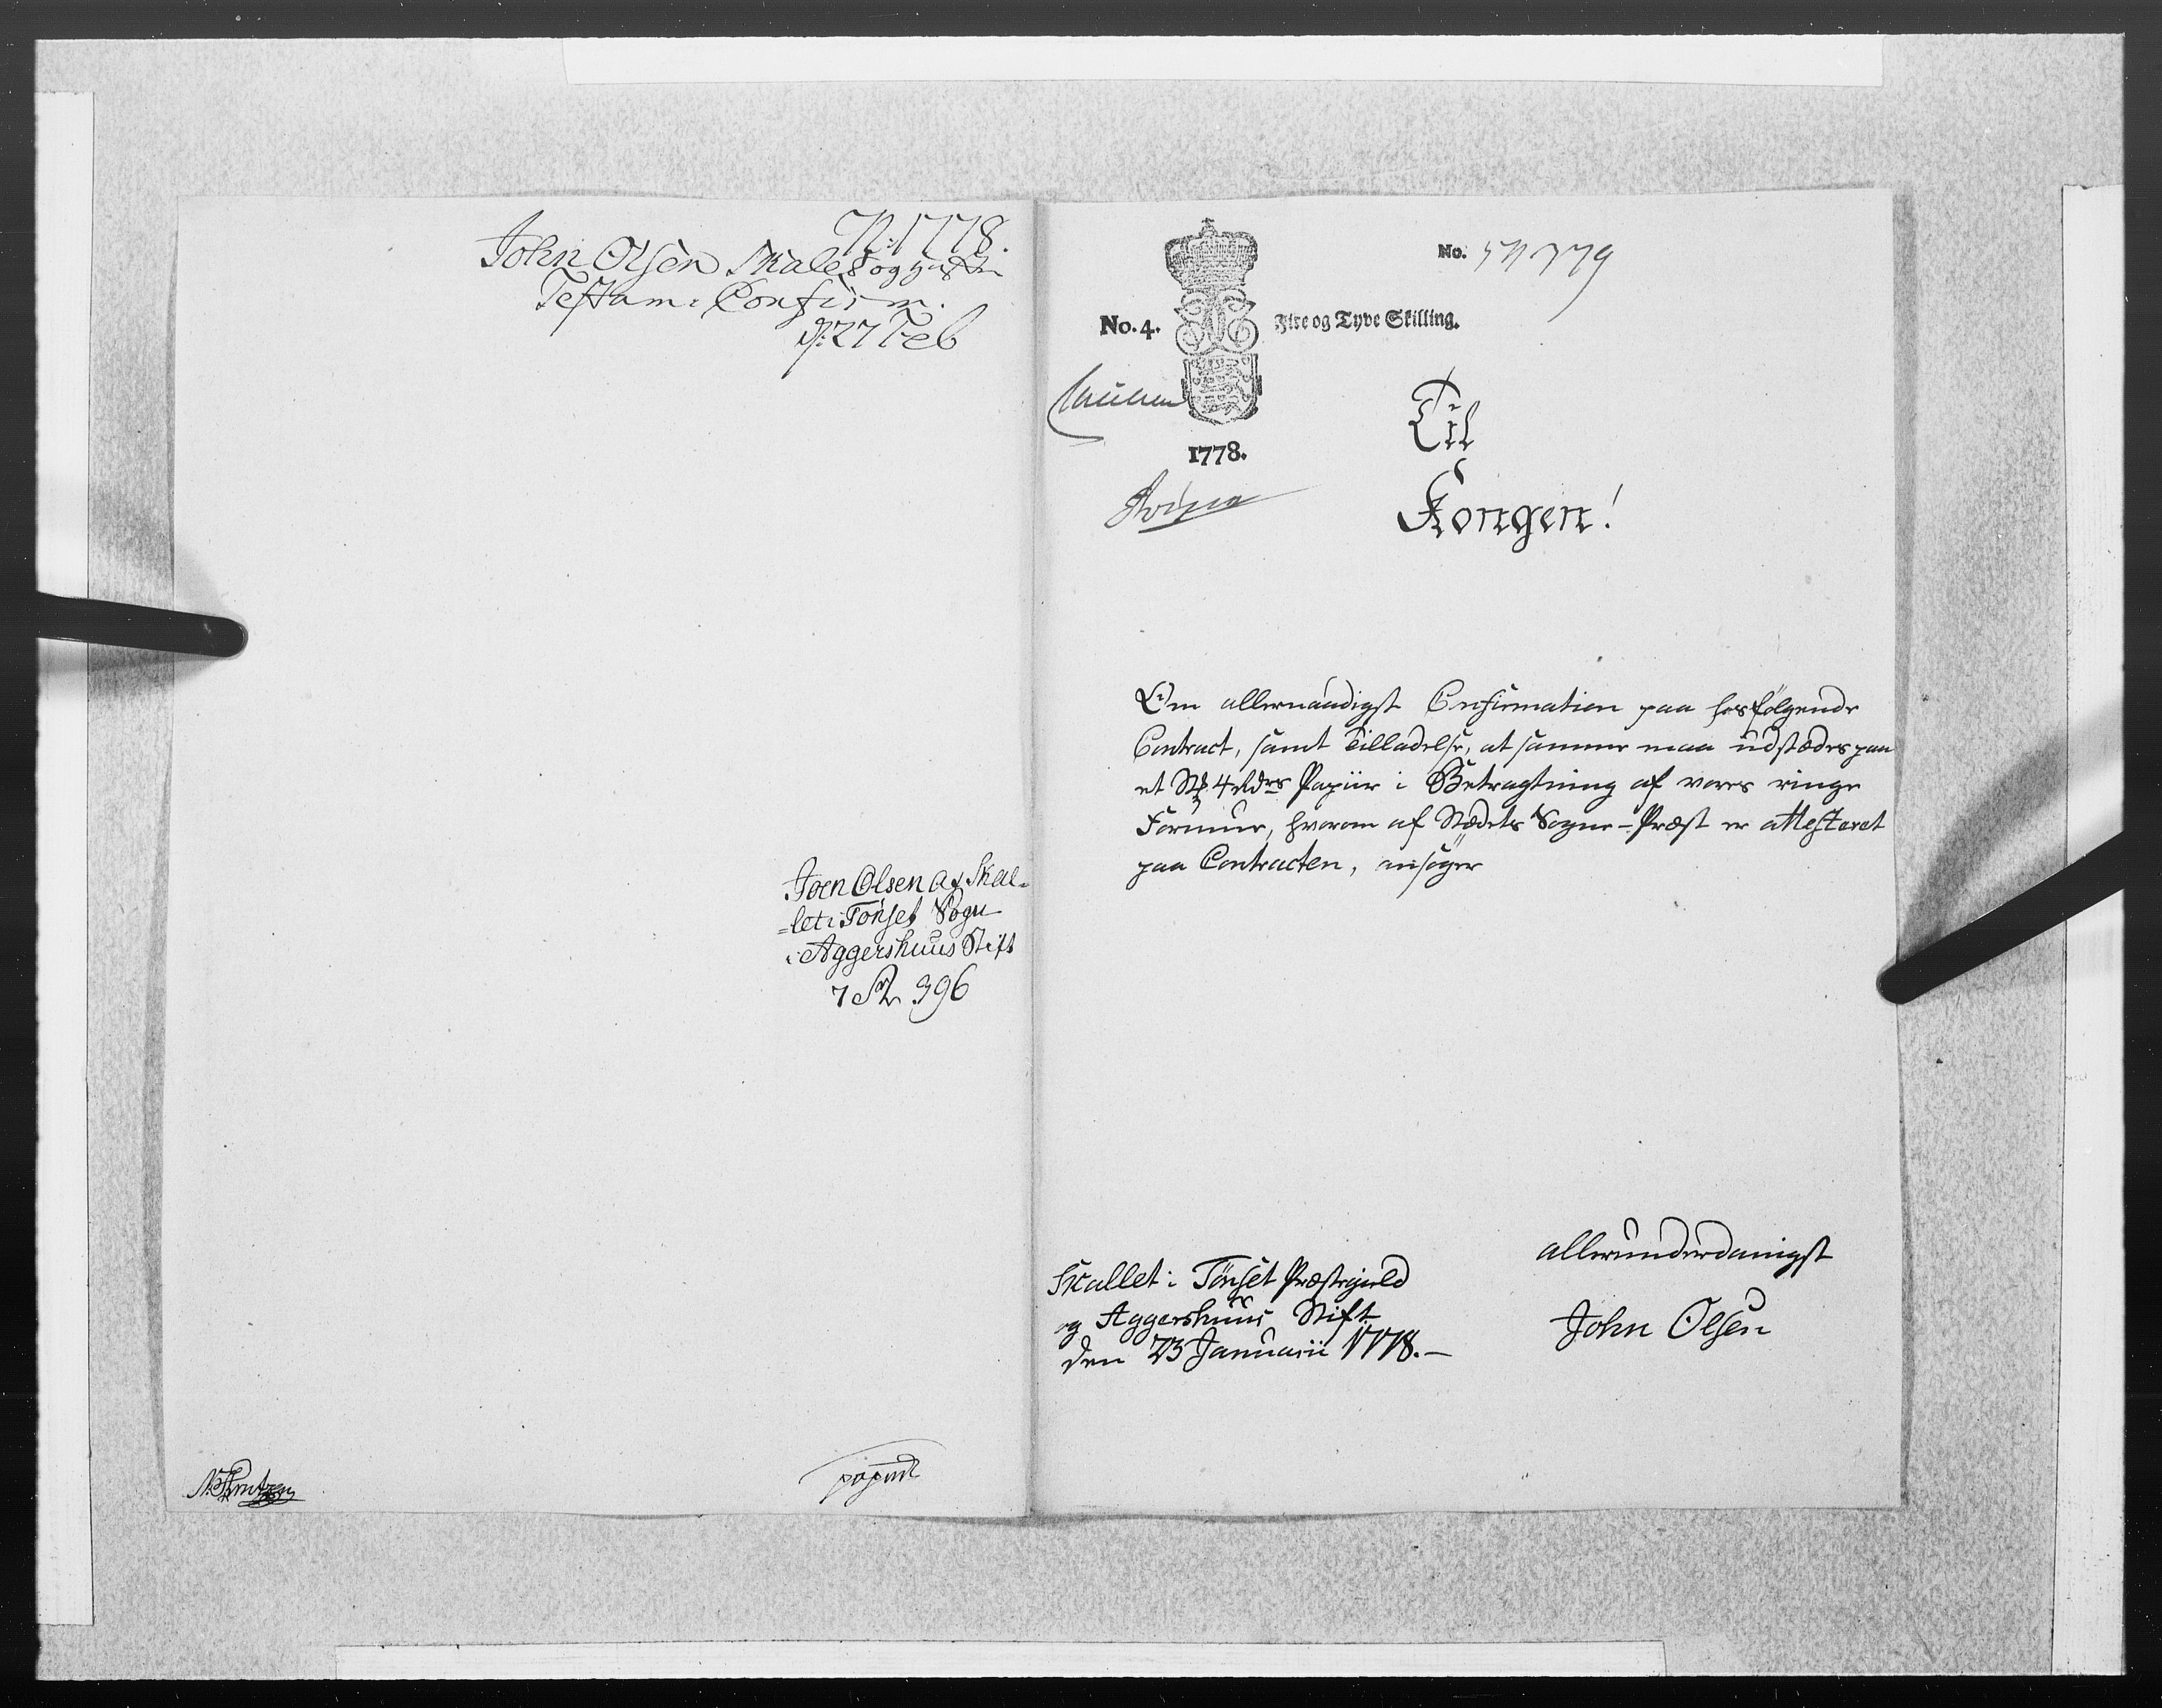 N: 1778.
John Olsen Skalet og Hustru
Testam: Confirm.
D: 27 Feb
Joen Olsen af Skal-
=let i Tønset Sogn
i Aggershuus Stift
7 396
No.
No. 4. Fire og Tyve Skilling.
1778.
Til
Kongen!
Om allernaadigst Confirmation paa hosfølgende
Contract, samt Tilladelse, at samme maa udstædes paa
et 4 Papiir i Betragtning af vores ringe
Formue, hvorom af Stædets Sogne-Præst er attesteret
paa Contracten, ansøger
allerunderdanigst
John Olsen
Skallet i Tønset Præstegield
og Aggershuus Stift
den 23 Januarii 1778.-